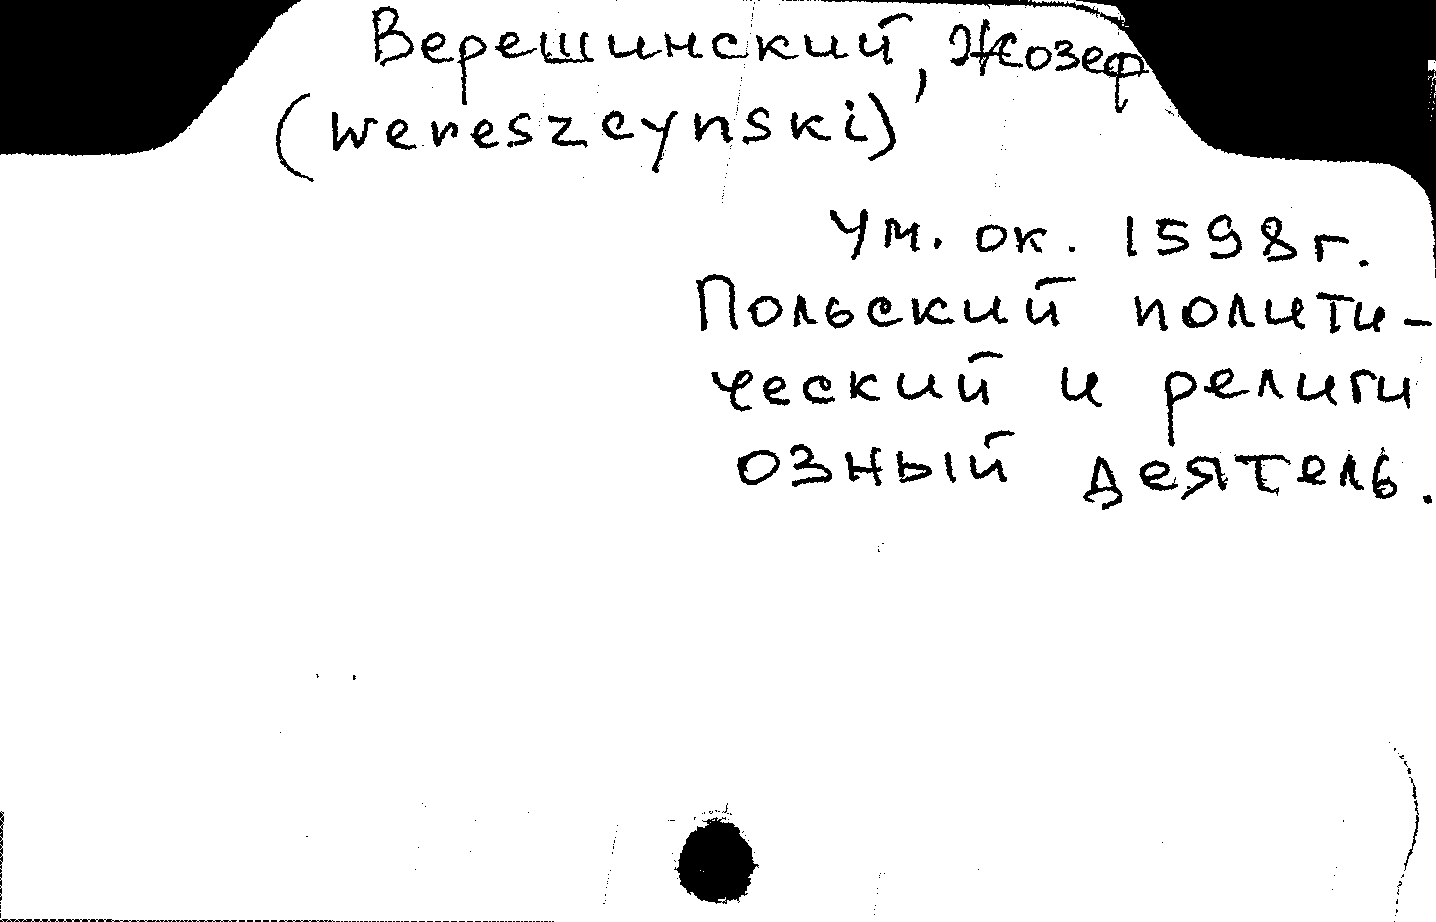 Верешинский, Жозеф
(Wereszcynski)
Ум. ок. 1598 г.
Польский полити-
ческий и религи
озный деятель.